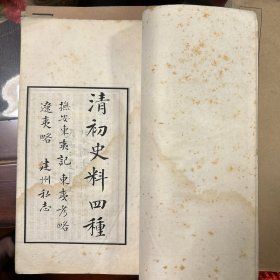 清初史料四種
撫安東夷記 東夷考略
遼夷略 建州私志